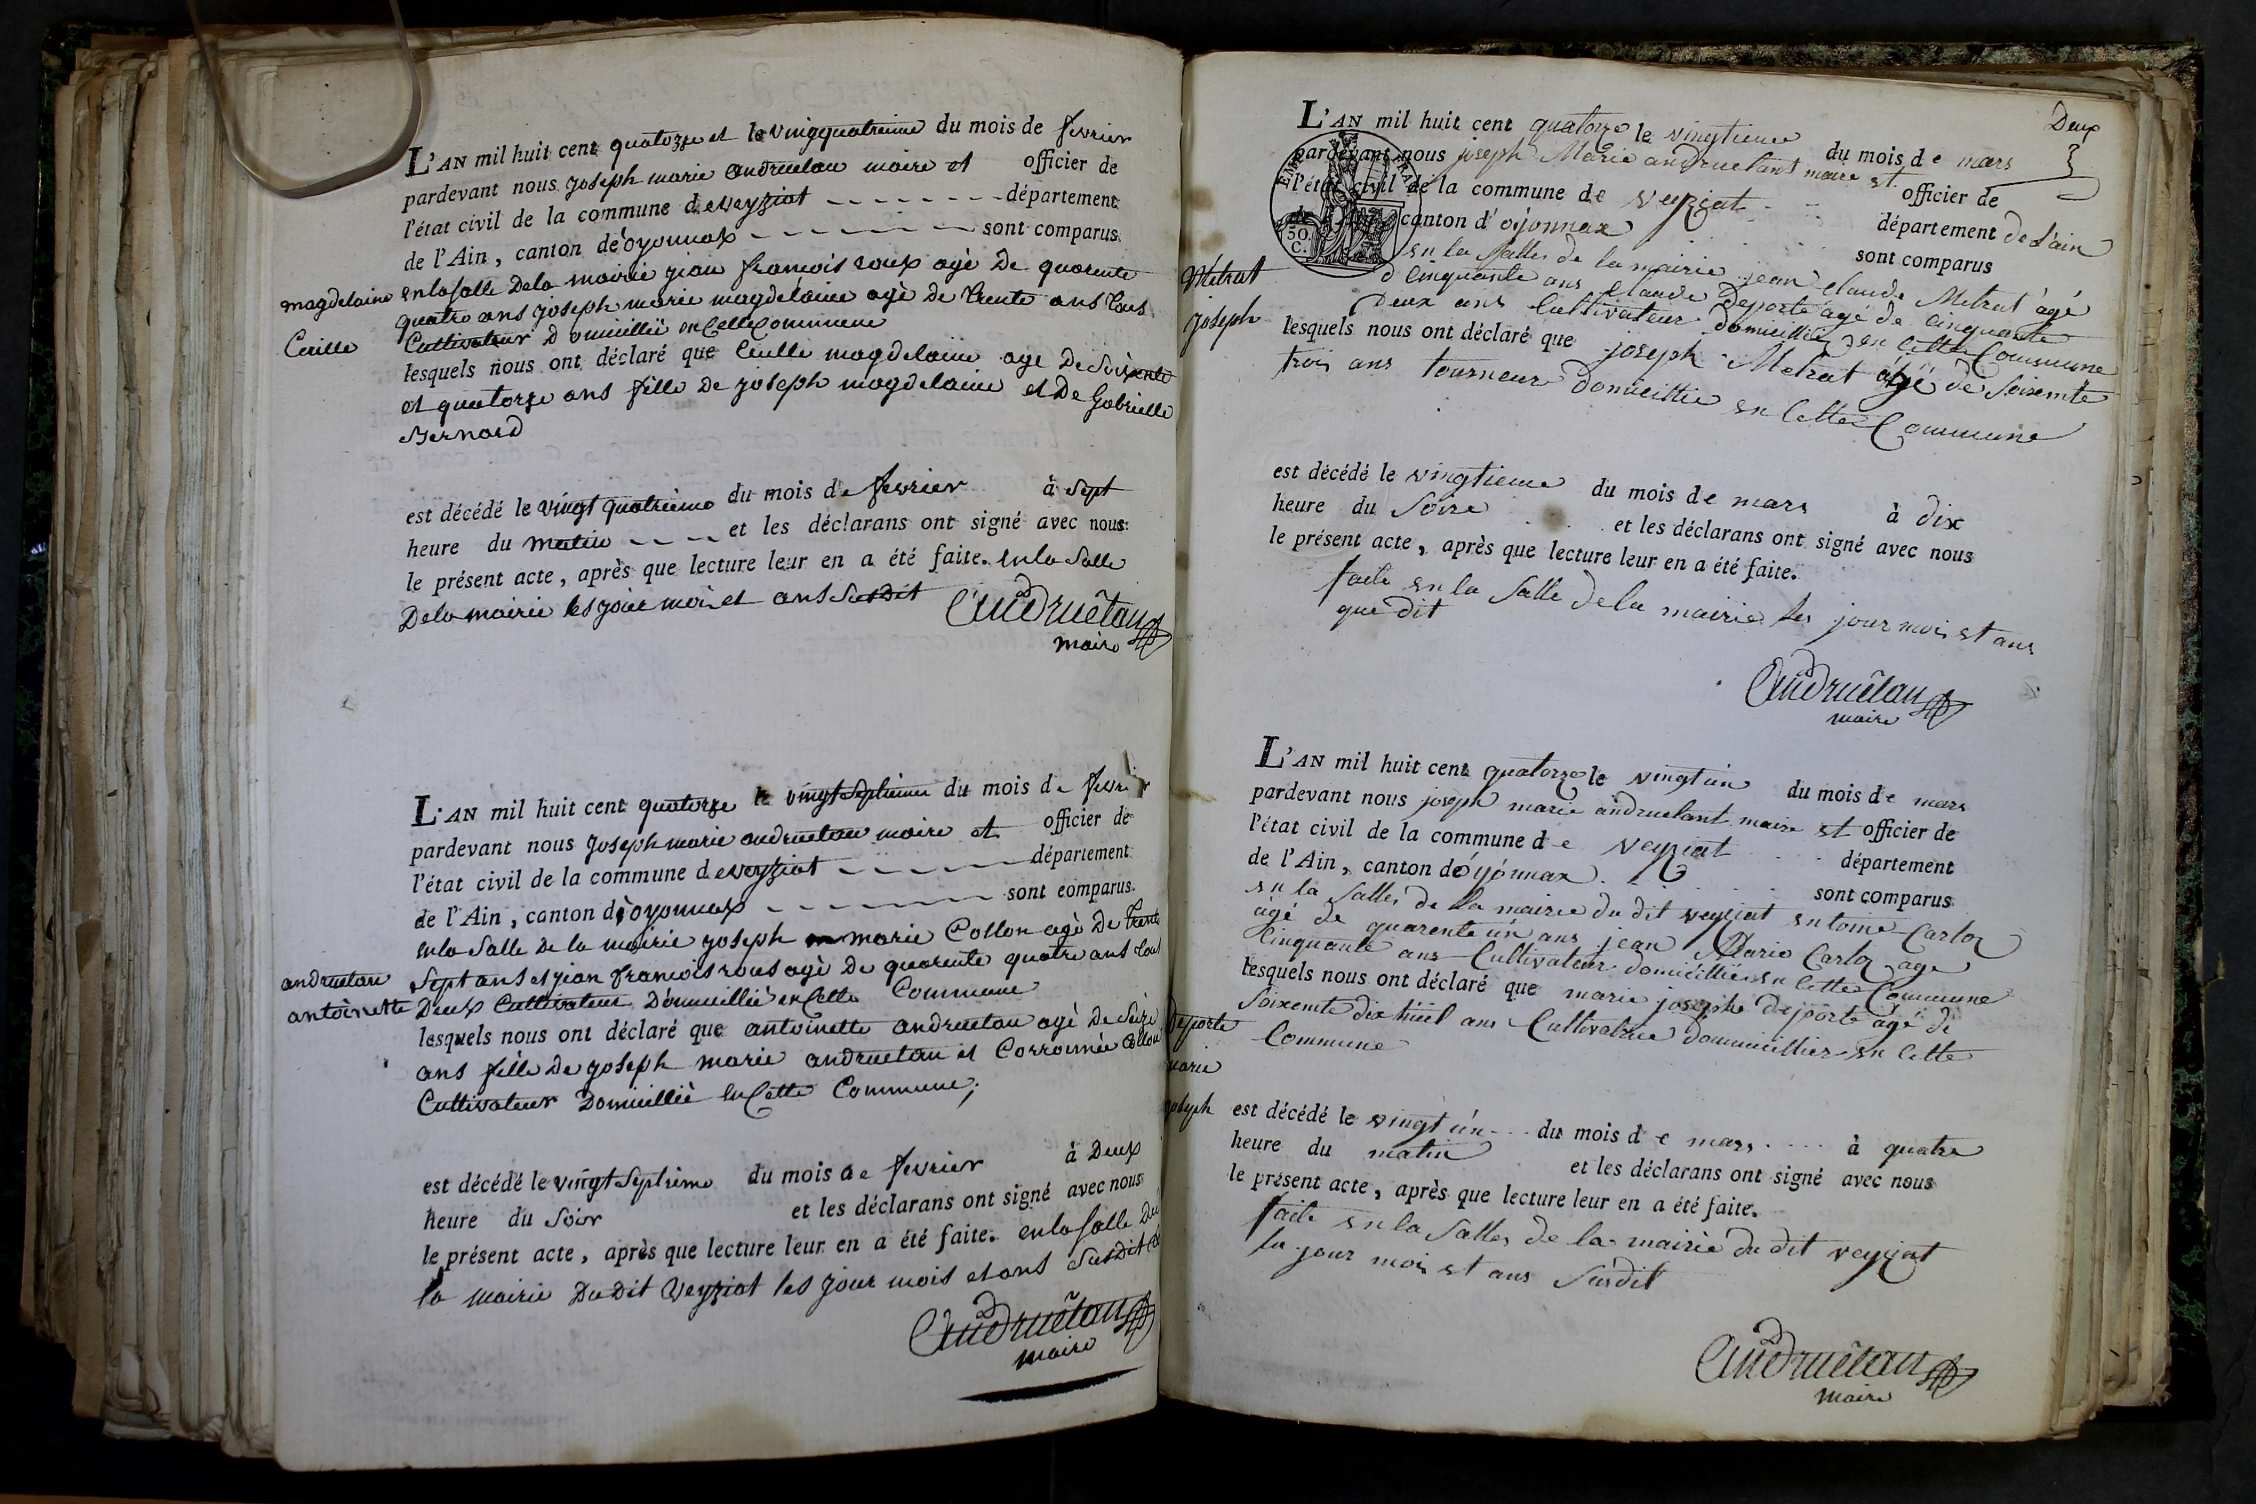 L'AN mil huit cent quatorze et le vingtquatrieme du mois de fevrier
pardevant nous joseph marie andruetan maire et officier de
l'état civil de la commune de veyziat département
de l'Ain, canton de oyonnax sont comparus
en la salle De la mairie jian francois roux agè De quarente
magdelaine
quatre ans joseph marie magdelaine agè De trente ans tous
Cecille
Cultivateur Domicillié en Cette Commune
lesquels nous ont déclaré que Cecille magdelaine age De Soixente
et quatorze ans fille De joseph magdelaine et De Gabrielle
Bernard
est décédé le vingt quatrieme du mois de fevrier à sept
heure du matin et les déclarans ont signé avec nous
le présent acte, après que lecture leur en a été faite. en la Salle
De la mairie les jour mois et ans Susdit
Andruêtan
maire
L'AN mil huit cent quatorze le vingt Septieme du mois de fevrier
pardevant nous joseph marie andruetan maire et officier de
l'état civil de la commune de veyziat département
de l'Ain, canton d'oyonnax sont comparus
en la Salle De la mairie joseph marie Collon agè De trente
andruetan
Sept ans et jian francois rous agè De quarente quatre ans tous
antoinette
Deux Cultivateur Domicillié en Cette Commune
lesquels nous ont déclaré que antoinette andruetan agè De Seize
ans fille De joseph marie andruetan et Corronnée Collon
Cultivateur Domicilliè en Cette Commune;
est décédé le vingt Septieme du mois de fevrier à Deux
heure du Soir et les déclarans ont signé avec nous
le présent acte, après que lecture leur en a été faite. en la salle De
la mairie Du Dit Veyziat les jour mois et ans Susdit
Andruêtan
maire
Deux
L'AN mil huit cent quatorze le vingtieme du mois de mars
pardevant nous joseph Marie andruetant maire et officier de
l'état civil de la commune de veyziat département de l'ain
de l'Ain canton d'oyonnax sont comparus
50
C.
en la Salles de la mairie jean claude Metrat âgé
Métrat
d cinquante ans claude Deporte âgé de cinquante
joseph
Deux ans Cultivateur domicillié en cette Commune
lesquels nous ont déclaré que joseph Metrat âgé de Soixente
trois ans tourneur domicillié en Cette Commune
est décédé le vingtieme du mois de mars à dix
heure du Soire et les déclarans ont signé avec nous
le présent acte, après que lecture leur en a été faite.
faite en la Salle de la mairie les jour mois et ans
que dit
Andruêtan
maire
L'AN mil huit cent quatorze le vingt un du mois de mars
pardevant nous joseph marie andruetant maire et officier de
l'état civil de la commune de veyziat département
de l'Ain, canton d'oyonnax sont comparus
en la Salles de la mairie du dit veyziat entoine Carloz
âgé de quarente ùn ans jean Mario Carloz age
Cinquante ans Cultivateur domicilliés en Cette Commune
lesquels nous ont déclaré que marie josephe Dejporte âgé de
Deporte
Soixente dix huit ans Cultivatrice dommicillier en Cette
Commune
marie
joseph
est décédé le vingt ùn du mois de mars à quatre
heure du matin et les déclarans ont signé avec nous
le présent acte, après que lecture leur en a été faite.
faite en la Salles de la mairie du dit veyziat
la jour mois et ans Susdit
Andruêtan
maire